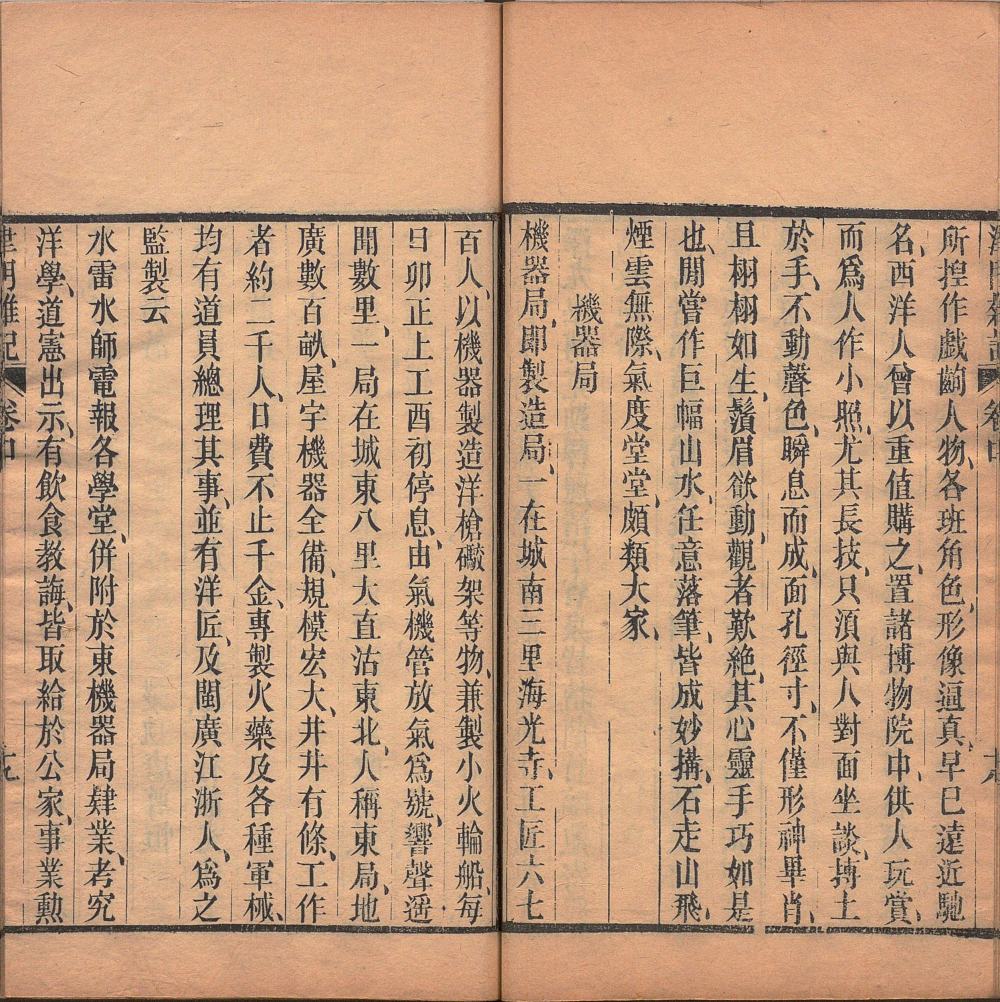 所揑作戲齣人物、各班角色、形像逼眞、早已遠近馳
名、西洋人曾以重值購之、置諸博物院中、供人玩賞、
而爲人作小照、尤其長技、只須與人對面坐談、摶土
於手、不動聲色、瞬息而成、面孔徑寸、不僅形神畢肖、
且栩栩如生、鬚眉欲動、觀者歎絶、其心靈手巧如是
也、閒嘗作巨幅山水、任意落筆、皆成妙搆、石走山飛、
煙雲無際、氣度堂堂、頗類大家、
機器局
機器局、卽製造局、一在城南三里海光寺、工匠六七
百人、以機器製造洋槍礮架等物、兼製小火輪船、每
日卯正上工酉初停息、由氣機管放氣爲號、響聲遥
聞數里、一局在城東八里大直沽東北、人稱東局、地
廣數百畝、屋宇機器全備、規模宏大、井井有條、工作
者約二千人、日費不止千金、專製火藥及各種軍械、
均有道員總理其事、並有洋匠、及閩廣江浙人、爲之
監製云
水雷水師電報各學堂、併附於東機器局肄業、考究
洋學、道憲出示、有飲食教誨、皆取給於公家、事業勳